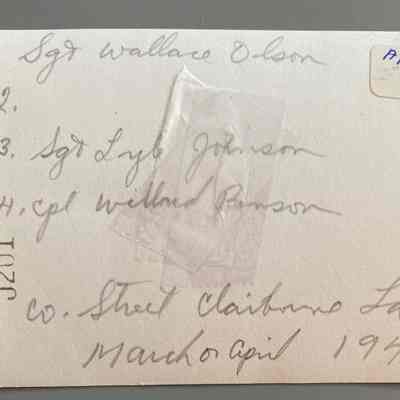 Sgt Wallace Olson
2.
3. Sgt Lyle Johnson
4. Cpl Willard Benson
Co. Street Claiborne La
March or April 194
J201